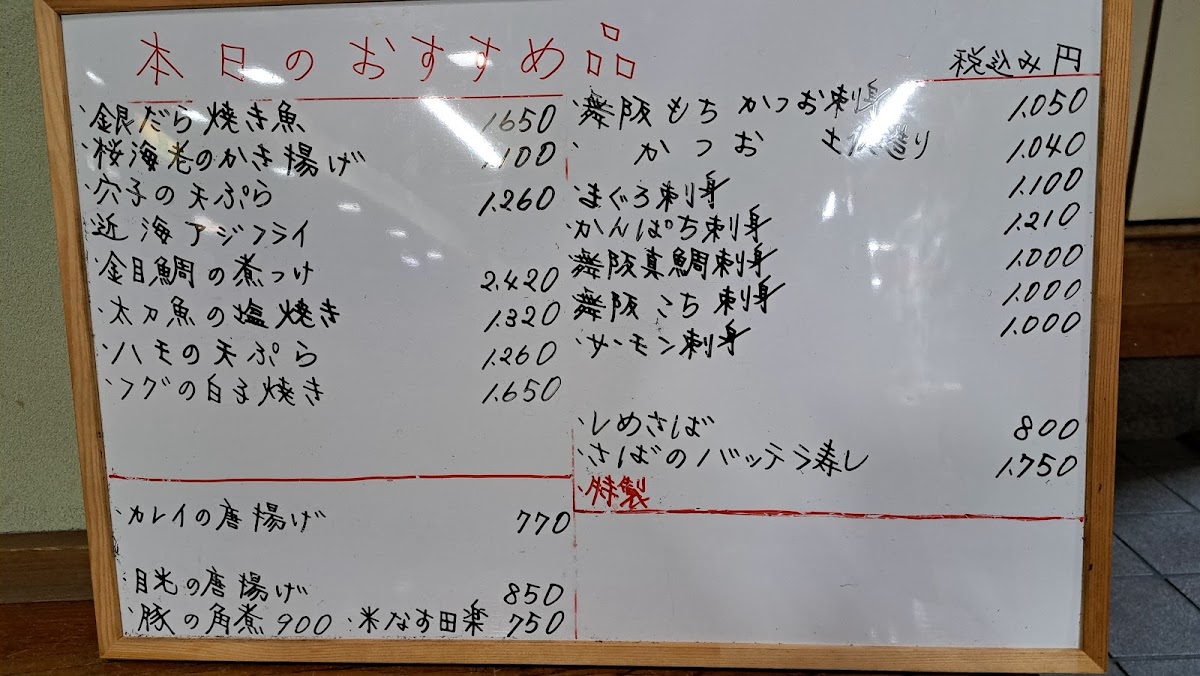 本日のおすすめ品
税込み円
・銀だら焼き魚 1.650
・桜海老のかき揚げ 1.100
・穴子の天ぷら 1.260
・近海アジフライ
・金目鯛の煮つけ 2.420
・太刀魚の塩焼き 1.320
・ハモの天ぷら 1.260
・フグの白子焼き 1.650
・カレイの唐揚げ 770
・目光の唐揚げ 850
・豚の角煮 900 ・米なす田楽 750
・舞阪もちかつお刺身 1.050
・かつお 土佐造り 1.040
・まぐろ刺身 1.100
・かんぱち刺身 1.210
・舞阪真鯛刺身 1.000
・舞阪こち刺身 1.000
・サーモン刺身 1.000
・しめさば 800
・さばのバッテラ寿し 1.750
・特製